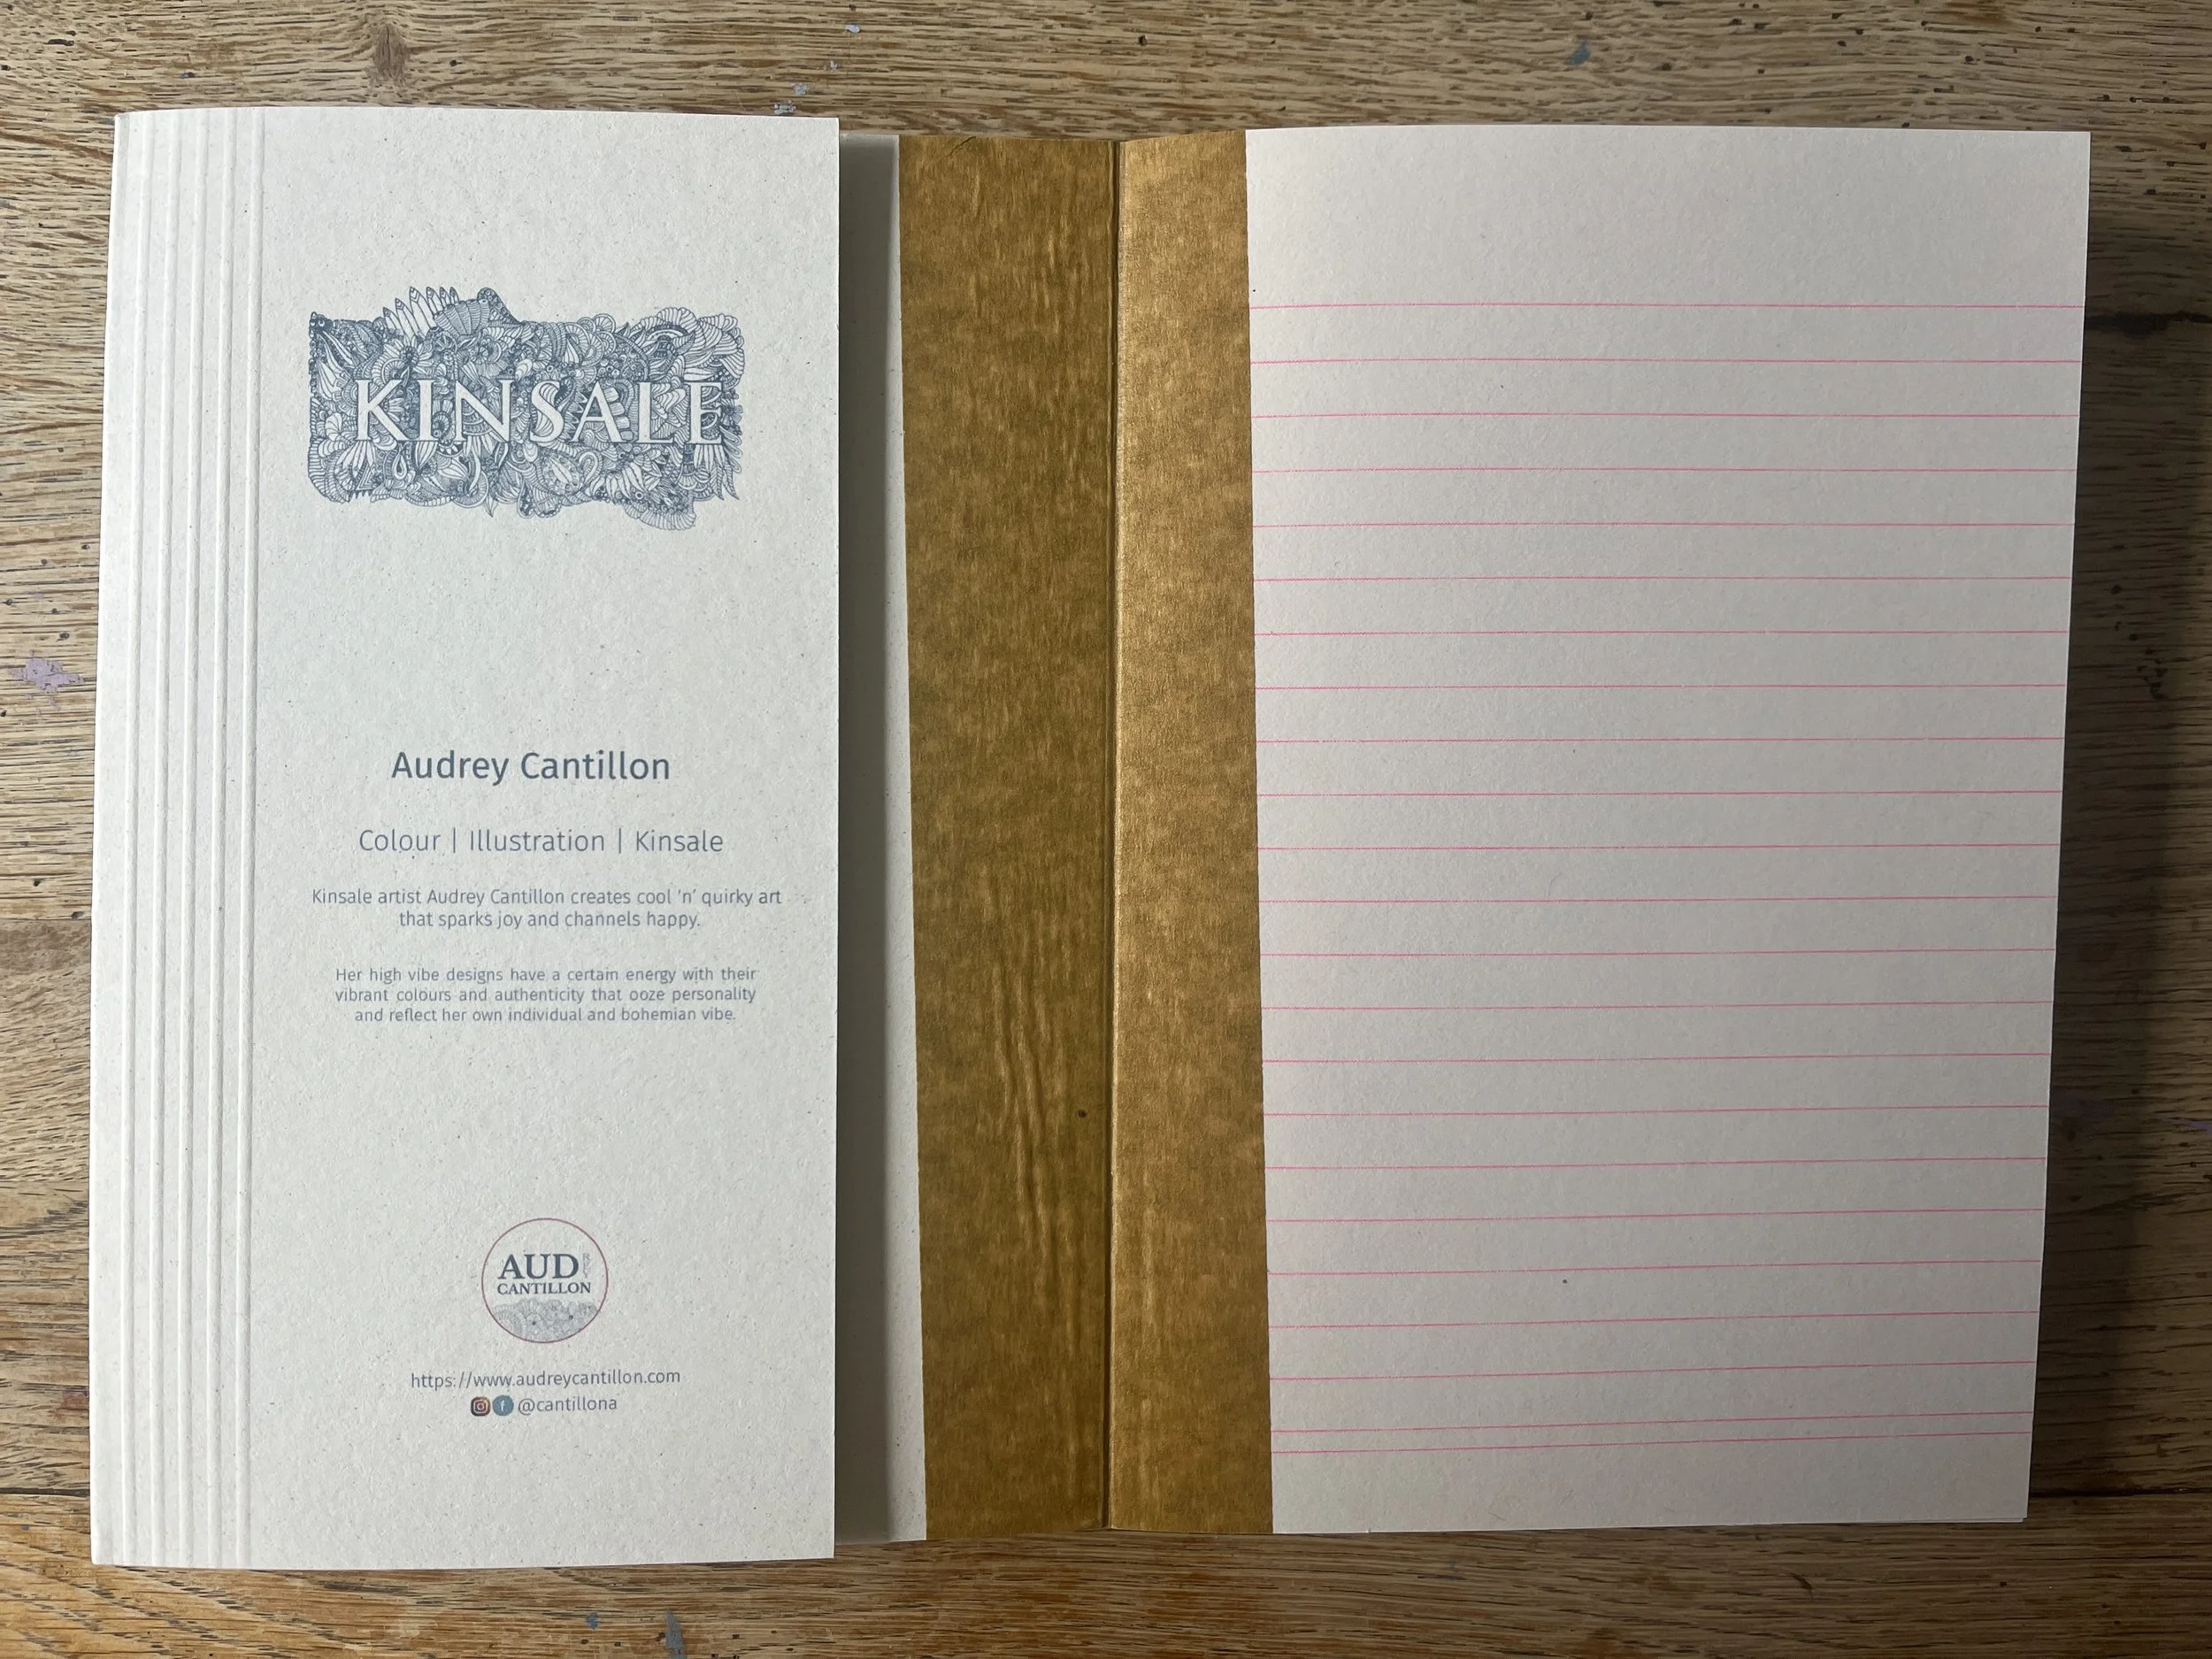 KINSALE
Audrey Cantillon
Colour | Illustration | Kinsale
Kinsale artist Audrey Cantillon creates cool ‘n’ quirky art
that sparks joy and channels happy.
Her high vibe designs have a certain energy with their
vibrant colours and authenticity that ooze personality
and reflect her own individual and bohemian vibe.
AUDREY
CANTILLON
https://www.audreycantillon.com
@cantillona